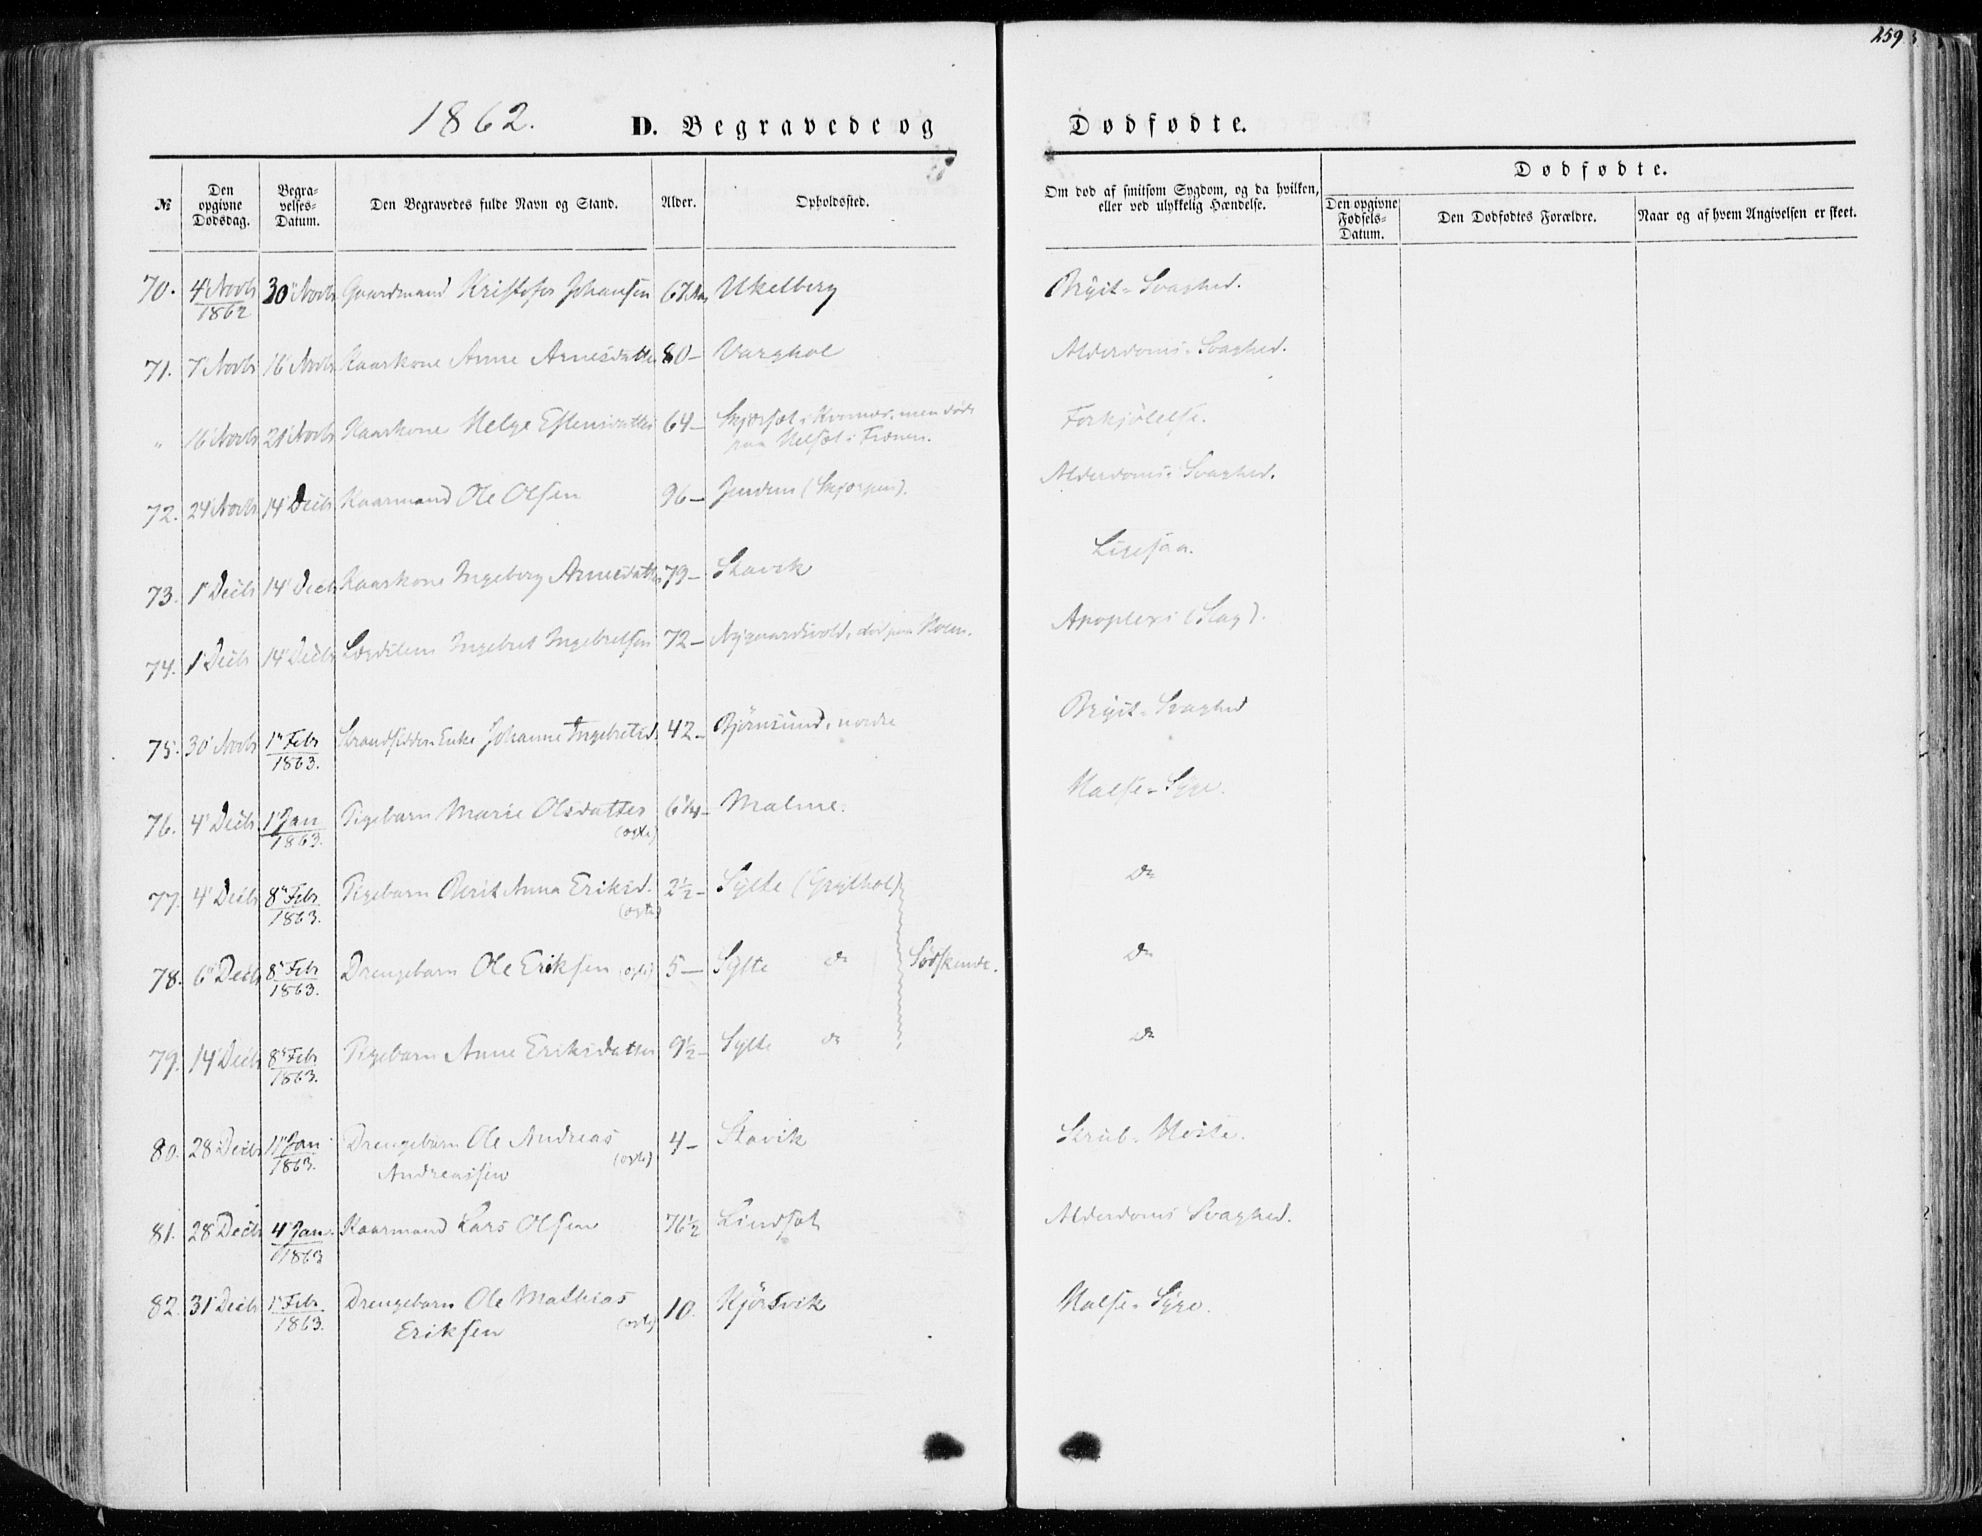 259
1862.
D. Begravede og Dødfødte.
№
Den opgivne Dødsdag.
Begravelses-Datum.
Den Begravedes fulde Navn og Stand.
Alder.
Opholdssted.
Om død af smitsom Sygdom, og da hvilken, eller ved ulykkelig Hændelse.
Dødfødte.
Den opgivne Fødsels-Datum.
Den Dødfødtes Forældre.
Naar og af hvem Angivelsen er skeet.
70. 4' Novbr 1862 30' Novbr Gaardmand Kristofer Johansen 67 Ukelberg Bryst-Svaghed.
71. 7' Novbr 16' Novbr Kaarkone Anne Arnesdatter 80- Varghol Alderdoms-Svaghed.
" 16' Novbr 21' Novbr Kaarkone Helge Estensdatter 64- men døde
paa i Frænen. Forkjølelse.
72. 24' Novbr 14' Decbr Kaarmand Ole Olsen 96- Alderdoms-Svaghed.
73. 1' Decbr 14' Decbr Kaarkone Ingeborg Arnesdatter 79- Stavik Ligesaa.
74. 1' Decbr 14' Decbr Lægdslem Ingebret Ingebretsen 72- død paa Apoplexi (Slag).
75. 30' Novbr 1' Febr 1863. Strandsidder-Enke Johanne Ingebretsd. 42- Bjørnsund, nordre Bryst-Svaghed
76. 4' Decbr 1' Jan 1863. Pigebarn Marie Olsdatter (ægte) 6¼- Malme. Halse-Syge.
77. 4' Decbr 8' Febr 1863. Pigebarn Berit Anna Eriksd. (ægte) 2½- Sylte (Grythol) do
78. 6' Decbr 8' Febr 1863. Drengebarn Ole Eriksen (ægte) 5- Sylte do Sødskende. do
79. 14' Decbr 8' Febr 1863. Pigebarn Anne Eriksdatter 9½- Sylte do do
80. 28' Decbr 11' Jan 1863. Drengebarn Ole Andreas
Andreassen (ægte) 4- Stavik Strub-Hoste.
81. 28' Decbr 4' Jan. 1863 Kaarmand Lars Olsen 76½ Lindset Alderdoms Svaghed.
82. 31' Decbr 1' Febr. 1863. Drengebarn Ole Mathias
Eriksen (ægte) 10. Hjørsvik Halse-Syge.